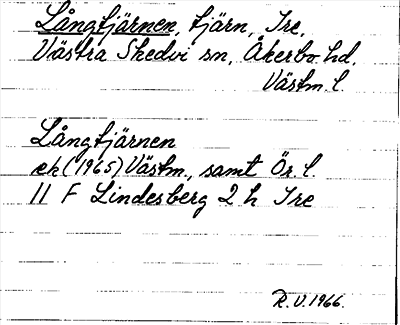 Långtjärnen, tjärn, Tre,
Västra Skedvi sn, Åkerbo hd,
Västm. l.
Långtjärnen
ek (1965) Västm., samt Ör. l.
11 F Lindesberg 2 h Tre
R.V. 1966.